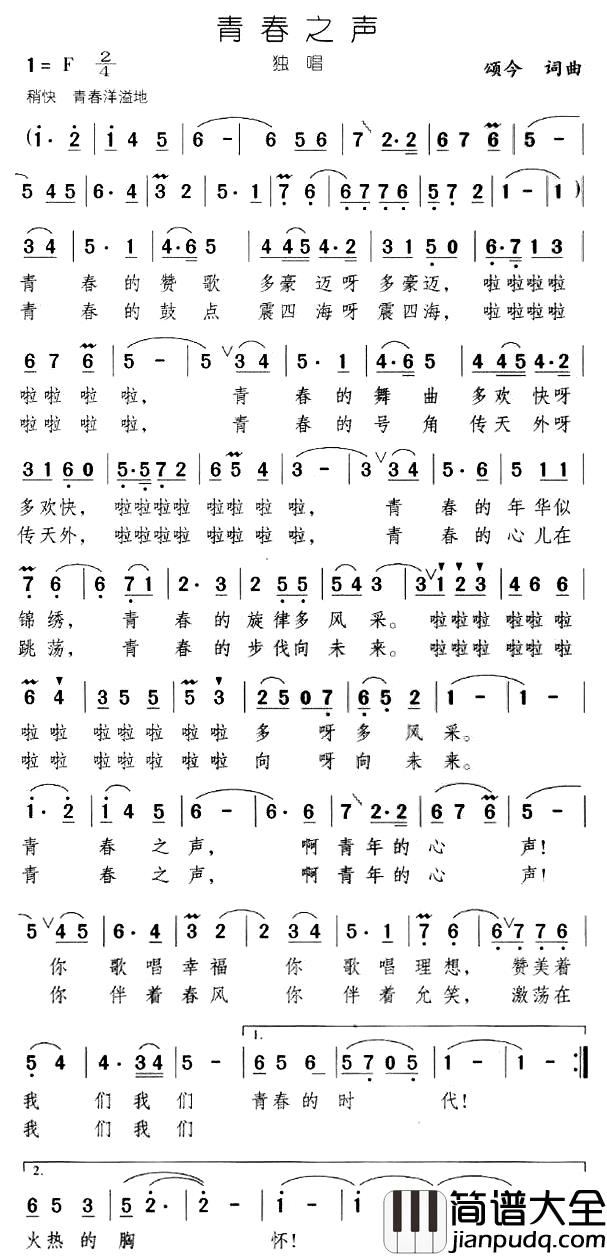 青春之声
1=F 2/4
独唱
颂今 词曲
稍快 青春洋溢地
(1·2 | 1 4 5 | 6 - | 6 5 6 | 7 2·2 | 6 7 6 |
5 4 5 | 6·4 | 3 2 | 5·1 | 7 6 | 6 7 7 6 | 5 7 2 | 1 - | 1 )
3 4 | 5·1 | 4·6 5 | 4 4 5 4·2 | 3 1 5 0 | 6·7 1 3
青 春的赞歌 多豪迈呀多豪迈, 啦啦啦啦
青 春的鼓点 震四海呀震四海, 啦啦啦啦
6 7 6 | 5 - | 5 ∨ 3 4 | 5·1 | 4·6 5 | 4 4 5 4·2
啦啦啦啦, 青 春的舞曲多欢快呀
啦啦啦啦, 青 春的号角传天外呀
3 1 6 0 | 5·5 7 2 | 6 5 4 | 3 - | 3 ∨ 3 4 | 5·6 | 5 1 1
多欢快, 啦啦啦啦啦啦啦啦, 青 春的年华似
传天外, 啦啦啦啦啦啦啦啦, 青 春的心儿在
7 6 | 6 7 1 | 2·3 | 2 5 5 | 5 4 3 | 3 ∨ 1 2 3 | 4 6 6
锦绣, 青 春的旋律多风采。啦啦啦啦啦啦
跳荡, 青 春的步伐向未来。啦啦啦啦啦啦
6 4 | 3 5 5 | 5 3 | 2 5 0 7 | 6 5 2 | 1 - | 1 -
啦啦 啦啦啦啦啦 多 呀多 风 采。
啦啦 啦啦啦啦啦 向 呀向 未 来。
1·2 | 1 4 5 | 6 - | 6·6 | 7 2·2 | 6 7 6 | 5 -
青 春之声, 啊青年的心 声!
青 春之声, 啊青年的心 声!
5 ∨ 4 5 | 6·4 | 3 2 | 2 3 4 | 5·1 | 7 6 | 6 ∨ 7 7 6
你 歌唱幸福 你 歌唱理想, 赞美着
你 伴着春风 你 伴着允笑, 激荡在
1.
5 4 | 4·3 4 | 5 - | 6 5 6 | 5 7 0 5 | 1 - | 1 - :‖
我 们我们 青春的时 代!
我 们我们
2.
6 5 3 | 5 2· | 2·2 | 1 - | 1
火热的胸 怀!
简谱大全
jianpudq.com